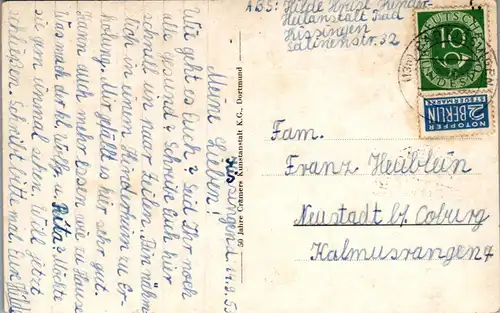 ABS: Hilde Krust, Kinder-
Heilanstalt Bad
Kissingen
Salinenstr. 32
Kissingen, d. 14.9.53
Meine Lieben!
Wie geht es Euch? Seid Ihr noch
alle gesund? Schreibe Euch hier
schnell ein paar Zeilen. Bin nähm-
lich in einem Kinderheim zu Er-
holung. Mir gefällt es hier sehr gut.
Kann auch mehr essen wie zu Hause
Was macht der kl. Rita? Möchte
sie gern einmal sehen. Will jetzt
schließen. Schreibt bitte mal. Eure Hilde
50 Jahre Crämers Kunstanstalt K.G., Dortmund
DEUTSCHE BUNDESPOST
10
NOTOPFER
2 BERLIN
STEUERMARKE
(13a)
Fam.
Franz Heublein
Neustadt b/ Coburg
Kalmusrangen 4